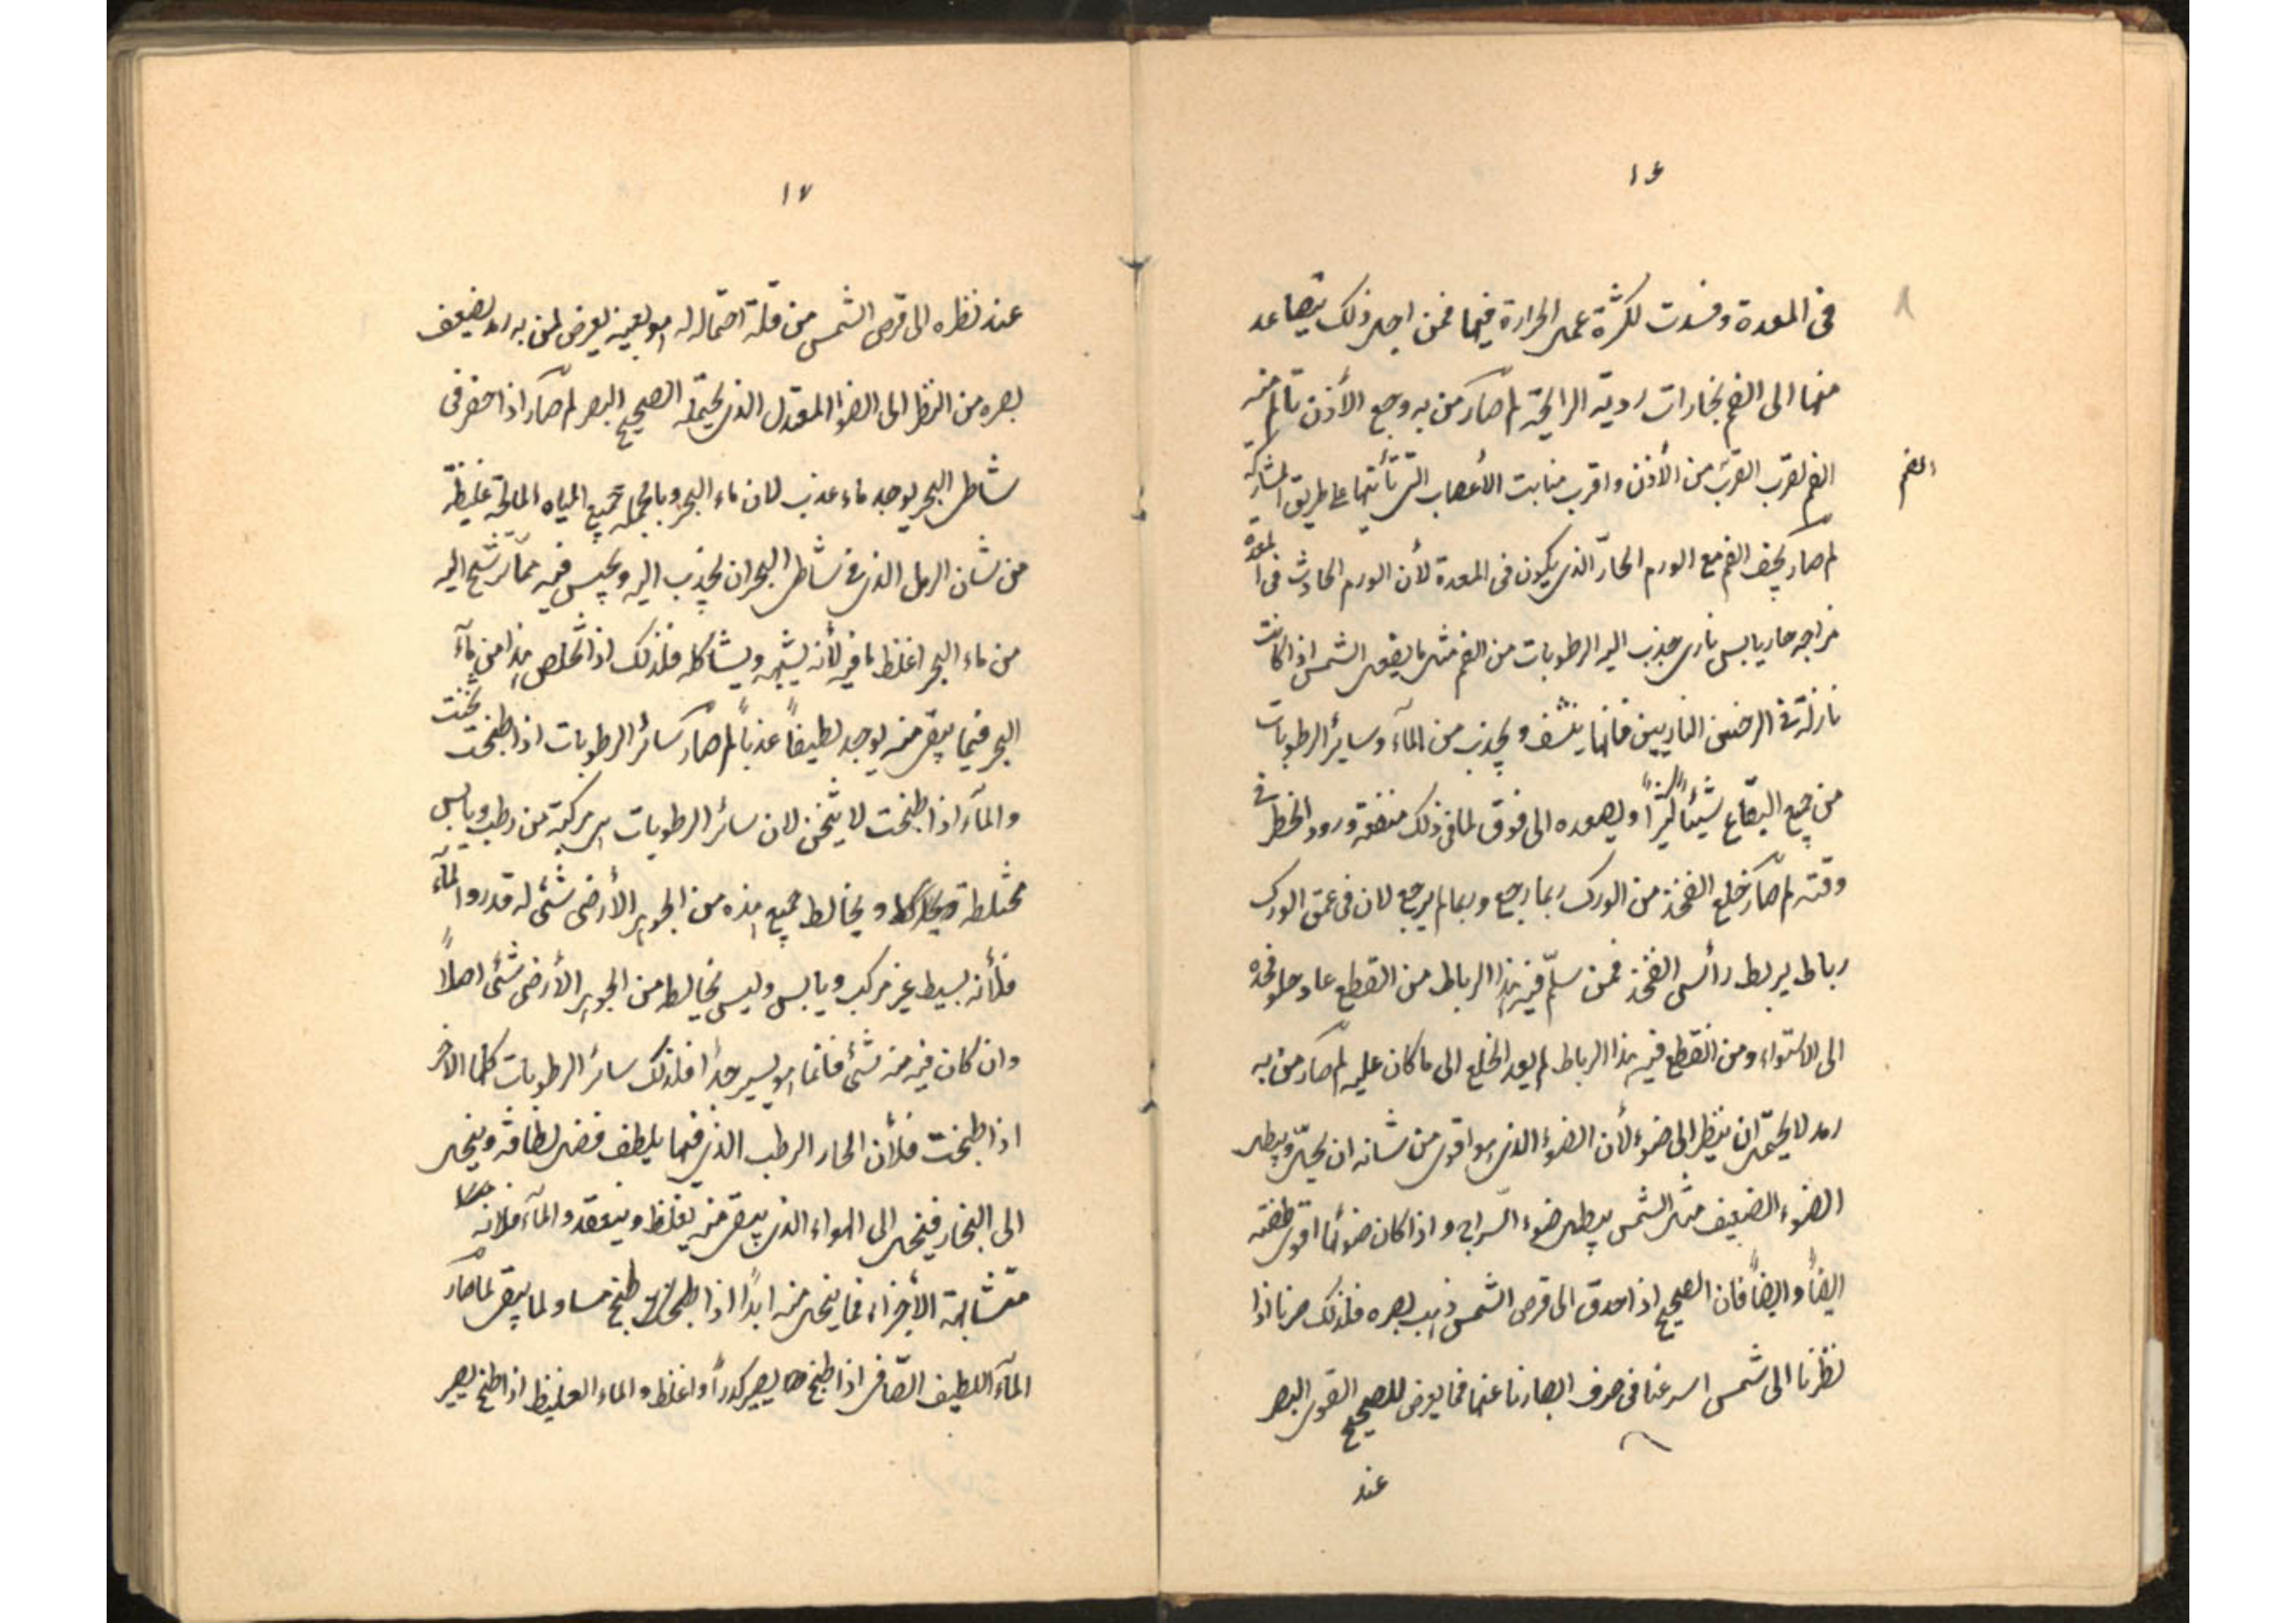 ١٦
فى المعدة وفسدت لكثرة عمل الحرارة فيها فمن اجل ذلك يتصاعد
منها الى الفم بخارات ردية الرايحة لم صار من به وجع الأذن تألم منه
الفم لقرب القرب من الأذن واقرب منابت الأعصاب التى تأتيها على طريق المشاركة
الفم
لم صار يجف الفم مع الورم الحارّ الذى يكون فى المعدة لأن الورم الحادث فى المعدة
مزاجه حار يابس نارى جذب اليه الرطوبات من الفم مثل ما يفعل الشمس اذا كانت
نازلة فى الناريين فانها ينشف و يجذب من المآء وسائر الرطوبات
من جميع البقاع شيئاً كثيراً ويصعده الى فوق لما فى ذلك منفعة ورود فى
وقته لم صار خلع الفخذ من الورك ربما رجع وربما لم يرجع لان فى عمق الورك
رباط يربط رأس الفخذ فمن سلّم فيه هذا الرباط من القطع عاد فخذه
الى الاستواء ومن انقطع فيه هذا الرباط لم يعد الخلع الى ما كان عليه لم صار من به
رمد لا يحتمل ان ينظر الى ضوء لأن الضوء الذى هو اقوى من شانه ان يحلّ ويبطل
الضوء الضعيف مثل الشمس يبطل ضوء السراج و اذا كان ضوئها اقوى
ايضاً و ايضاً فان الصحيح اذا حدق الى قرص الشمس ذهب بصره فلذلك صرنا اذا
نظرنا الى شمس اسرعنا فى صرف ابصارنا عنها فما يعرض للصحيح القوى البصر
عند
١٧
عند نظره الى قرص الشمس من قلّة احتماله له هو بعينه يعرض لمن به رمد لضعف
بصره من النظر الى الضوء المعتدل الذى يحتمله الصحيح البصر لم صار اذا حفر فى
شاطى البحر يوجد ماء عذب لان ماء البحر وبالجملة جميع المياه المالحة غليظة
من شان الرمل الذى فى شاطى البحر ان يجذب اليه ويحبس فيه ممّا يرشح اليه
من ماء البحر اغلظ ما فيه لأنه يشبهه ويشاكله فلذلك اذا تخلص هذا من مآء
البحر فيما يبقى منه يوجد لطيفاً عذباً لم صار سائر الرطوبات اذا طبخت ثخنت
والمآء اذا طبخت لا يثخن لان سائر الرطوبات هى مركبة من رطب ويابس
مختلطة و يخالط جميع هذه من الجوهر الأرضى شئى له قدر واالمآء
فلأنه بسيط غير مركب ويابس وليس يخالطه من الجوهر الأرضى شئى اصلاً
وان كان فيه منه شئى فانما هو يسير جداً فلذلك سائر الرطوبات كلها الاخر
اذا طبخت فلأن الحار الرطب الذى فيها يلطف فضل لطافة وينحل
الى البخار فينحل الى الهواء الذى يبقى منه يغلظ وينعقد والمآء فلانه
متشابهة الأجزاء فما ينحل منه ابداً اذا طبخ مساو لما يبقى لما صار
المآء اللطيف الصّافى اذا طبخ يصير كدراً و اغلظ والماء الغليظ اذا طبخ يصير